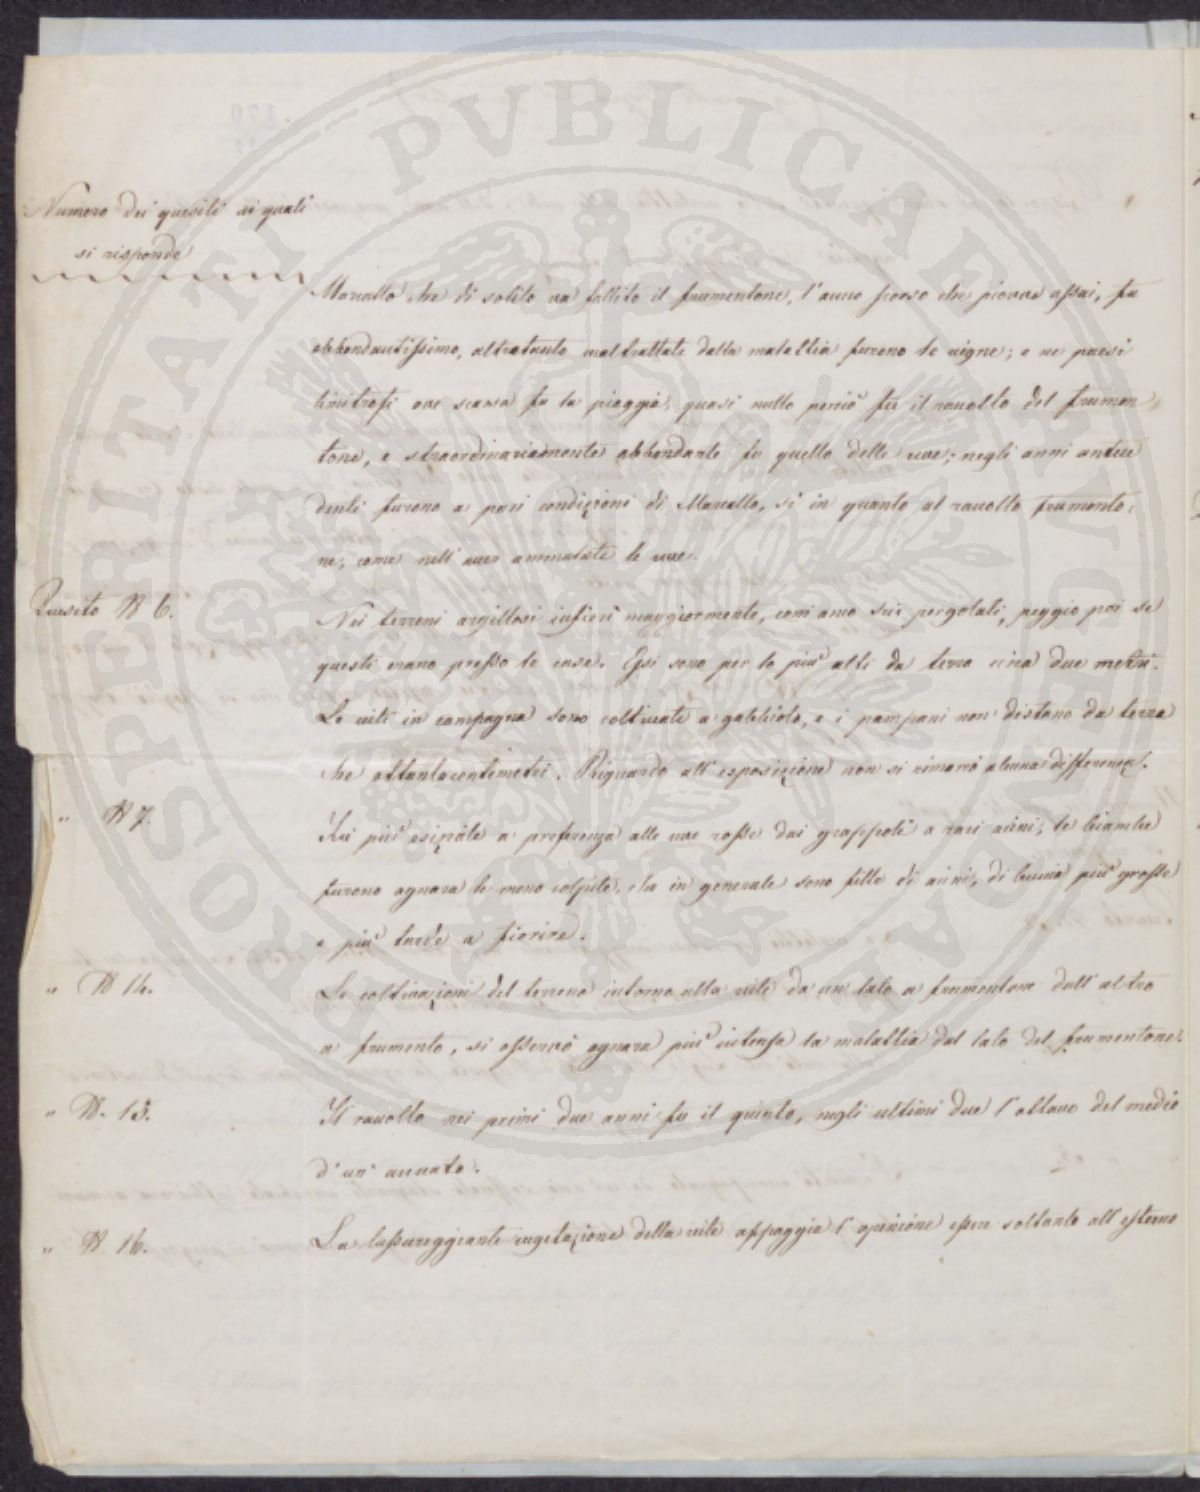 Numero dei quesiti ai quali
si risponde
Marcallo che di solito va fallito il frumentone, l'anno scorso che piovve assai, fu
abbondantissimo, altretanto maltrattate dalla malattia furono le vigne; e ne paesi
limitrofi ove scarsa fu la pioggia, quasi nullo perciò fu il raccolto del frumen=
tone, e straordinariamente abbondante fu quello delle uve; negli anni antece
denti furono a pari condizioni di Marcallo, sì in quanto al raccolto frumento=
ne, come nell'aver ammalate le uve.
Quesito N 6.
Nei terreni argillosi infierì maggiormente, com'anco sui pergolati, peggio poi se
questi erano presso le case. Essi sono per lo più alti da terra circa due metri.
Le viti in campagna sono coltivate a gabbiolo, e i pampani non distano da terra
che ottantacentimetri. Riguardo all'esposizione non si rimarcò alcuna differenza.
" N 7.
Fu più esiziale a preferenza alle uve rosse dai grappoli a rari acini, le bianche
furono ognora le meno colpite. in generale sono fitte di acini, di buccia più grossa
e più tarde a fiorire.
" N 14.
Le coltivazioni del terreno intorno alla vite da un lato a frumentone dall'altro
a frumento, si osservò ognora più intensa la malattia dal lato del frumentone.
" N. 15.
Il raccolto nei primi due anni fu il quinto, negli ultimi due l'ottavo del medio
d'un'annata.
" N 16.
La lussureggiante vegetazione della vite appoggia l'opinione essere soltanto all'esterno
PROSPERITATI PVBLICAE AVGENDAE